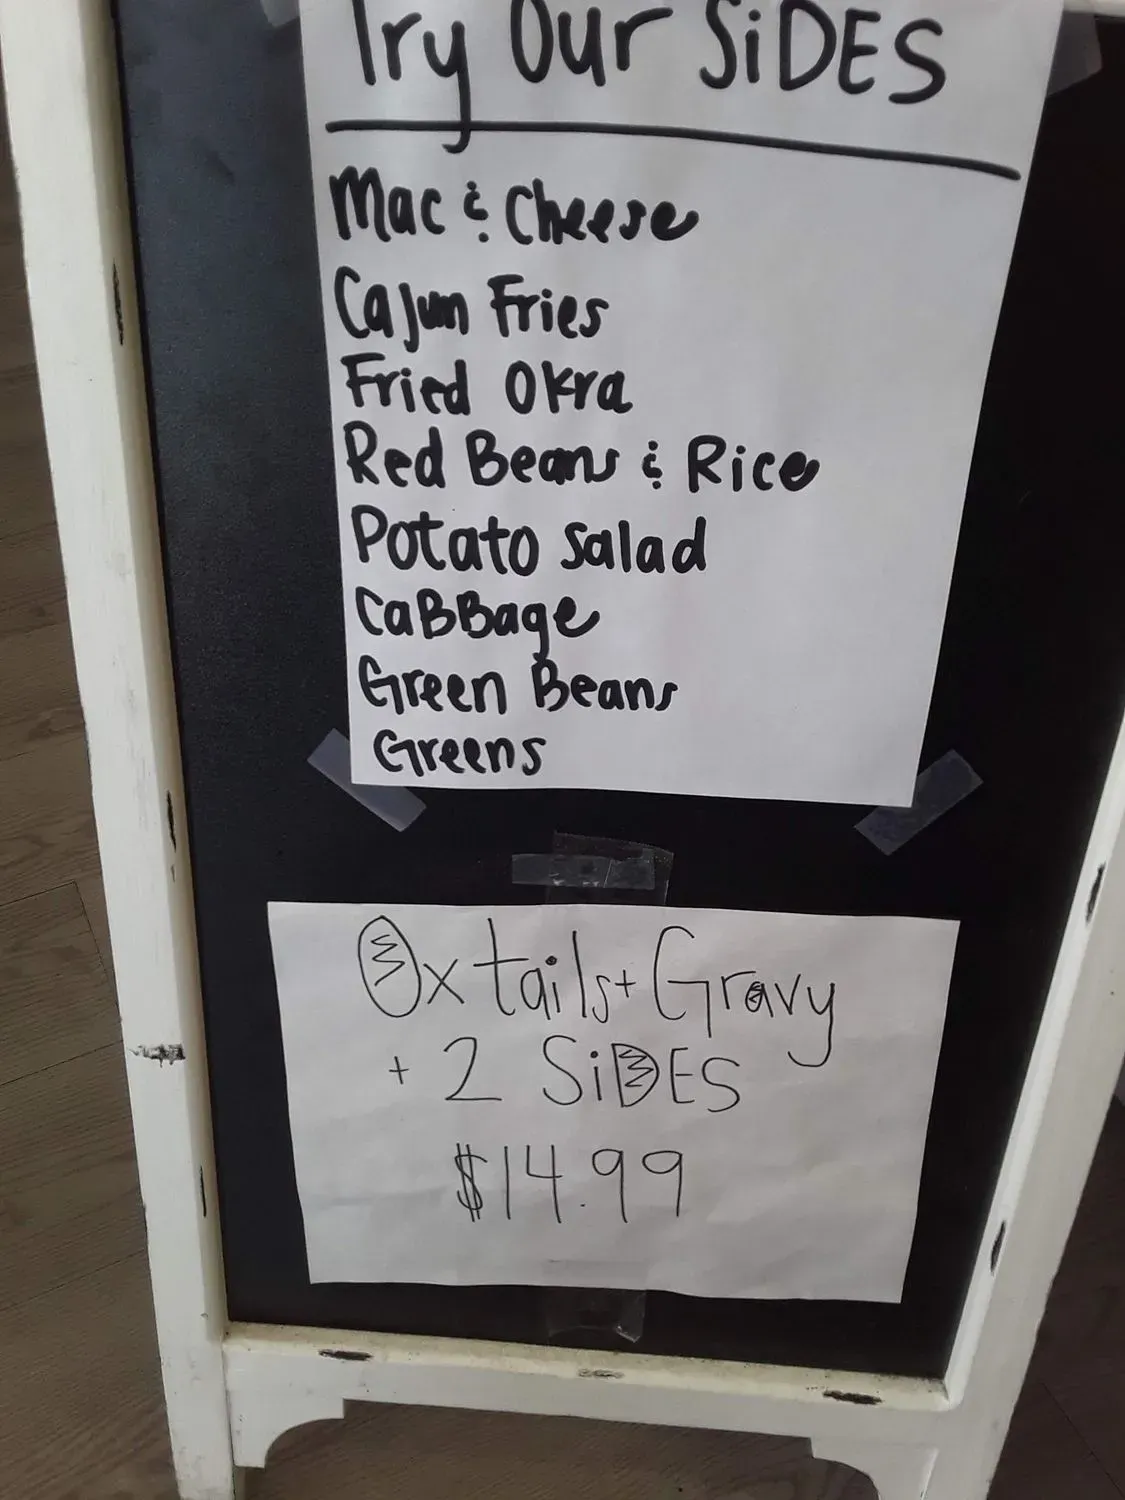 Try Our SiDES
Mac & Cheese
Cajun Fries
Fried Okra
Red Beans & Rice
Potato Salad
CaBBage
Green Beans
Greens
Oxtails + Gravy
+ 2 SiDES
$14.99